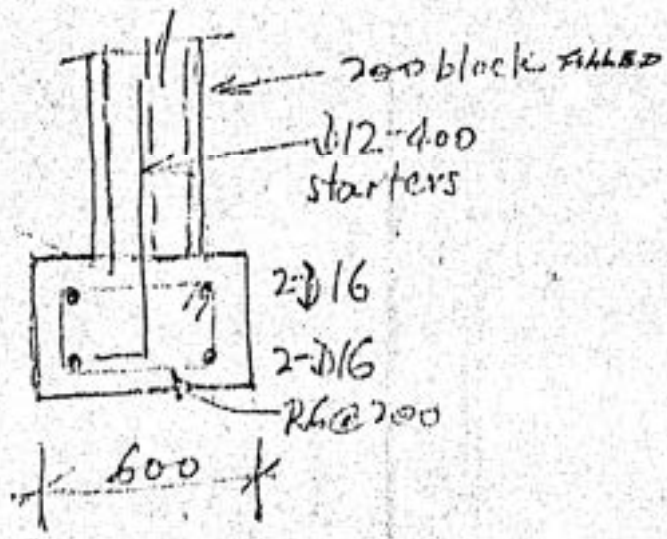 200 block FILLED
D12-400
starters
2-D16
2-D16
R6@200
600